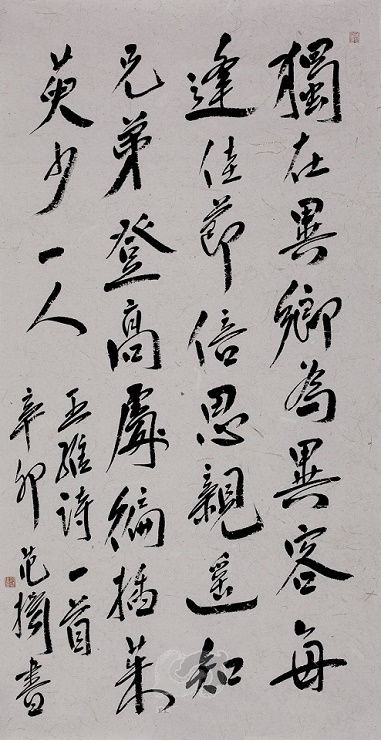 獨在異鄉為異客每
逢佳節倍思親遥知
兄弟登高處徧插茱
萸少一人
王维诗一首
辛卯范書